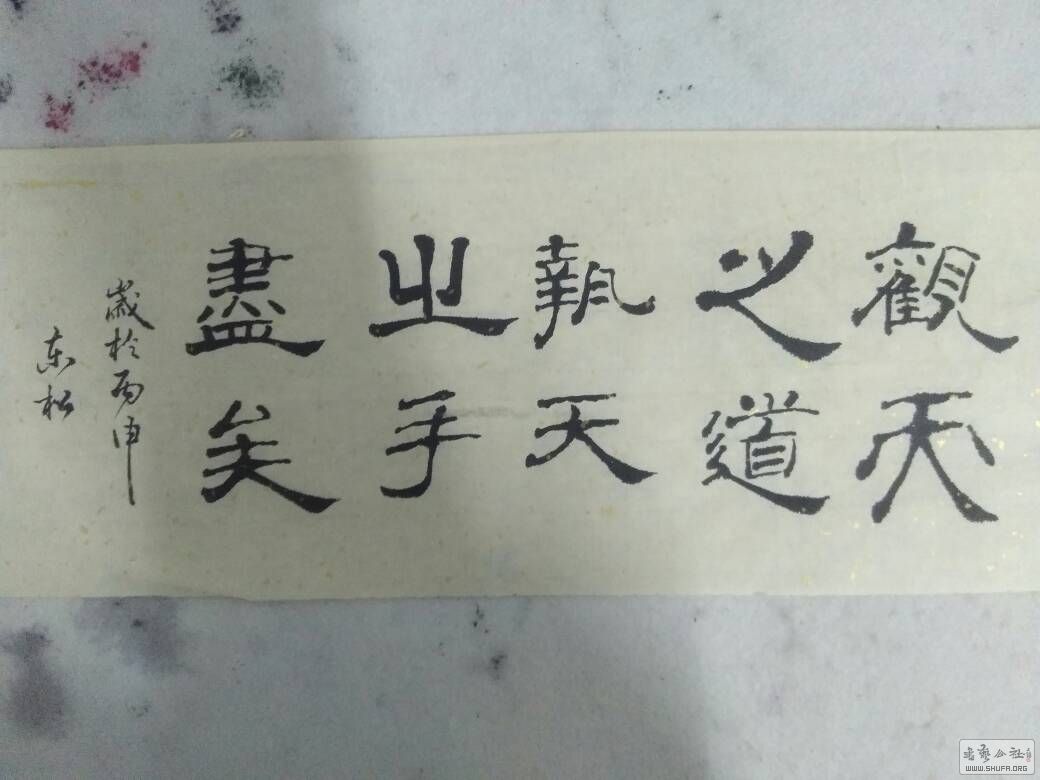 觀天
之道
執天
之手
盡矣
歲於丙申
东松
書藝公社
WWW.SHUFA.ORG